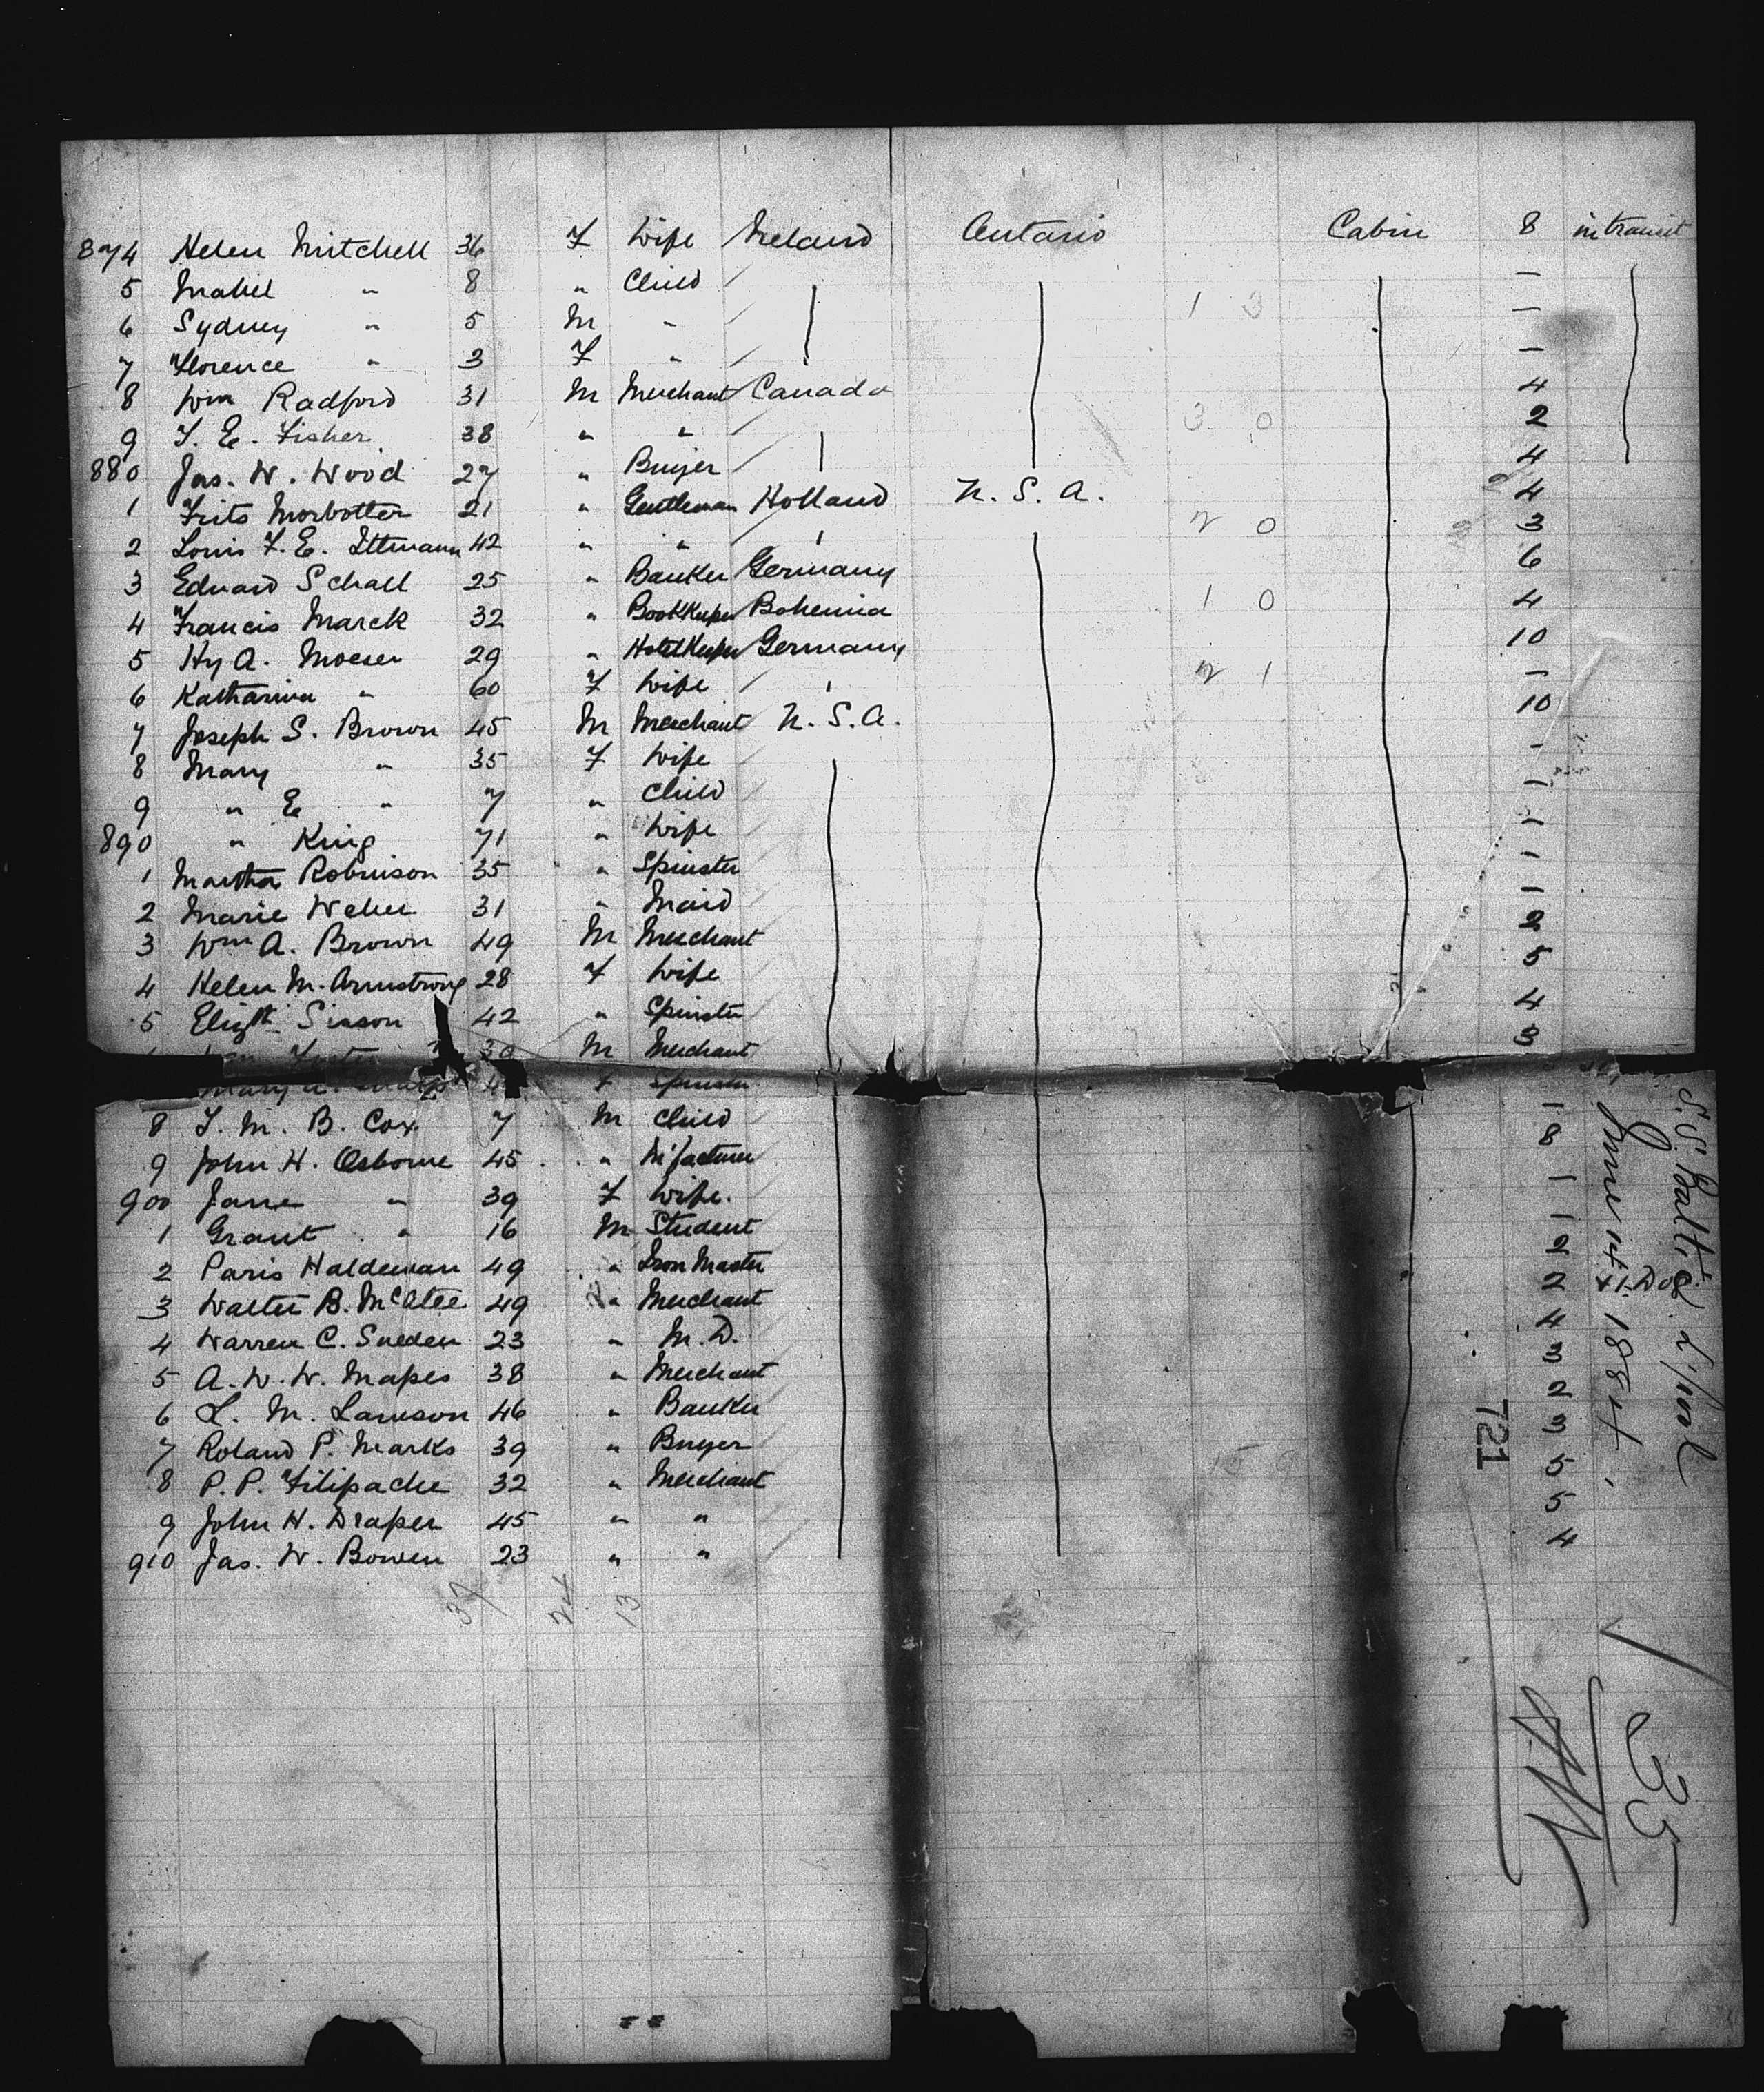 874 Helen Mitchell 36 F Wife Ireland Ontario Cabin 8 in transit
5 Mabel " 8 " Child —
6 Sydney " 5 M " —
7 Florence " 3 F " —
8 Wm Radford 31 M Merchant Canada 4
9 T. E. Fisher 38 " " 2
880 Jas. W. Wood 27 " Buyer 4
1 Frits Morbotter 21 " Gentleman Holland U. S. A. 4
2 Louis F. E. Ittmann 42 " " 3
3 Eduard Schall 25 " Banker Germany 6
4 Francis Marck 32 " BookKeeper Bohemia 4
5 Hy A. Moeser 29 " HotelKeeper Germany 10
6 Katharina " 60 F Wife —
7 Joseph S. Brown 45 M Merchant U. S. A. 10
8 Mary " 35 F Wife —
9 " E " 7 " Child —
890 " King 71 " Wife —
1 Martha Robinson 35 " Spinster —
2 Marie Weber 31 " Maid —
3 Wm A. Brown 49 M Merchant 2
4 Helen M. Armstrong 28 F Wife 5
5 Elizth Sisson 42 " Spinster 4
30 M Merchant 3
Mary A. F Spinster
8 T. M. B. Cox 7 M Child —
9 John H. Osborne 45 " M'facturer 8
900 Jane " 39 F Wife. —
1 Grant " 16 M Student —
2 Paris Haldeman 49 " Iron Master 2
3 Walter B. McAtee 49 " Merchant 2 + 1 Dog
4 Warren C. Sneden 23 " M. D. 4
5 A. W. W. Mapes 38 " Merchant 3
6 L. M. Lamson 46 " Banker 2
7 Roland P. Marks 39 " Buyer 3
8 P. P. Filipache 32 " Merchant 5
9 John H. Draper 45 " " 5
910 Jas. W. Bowen 23 " " 4
37 24 13
1 3
3 0
2 0
1 0
2 1
15 0
S.S. Baltic L'pool
June 14. 1884.
721
35